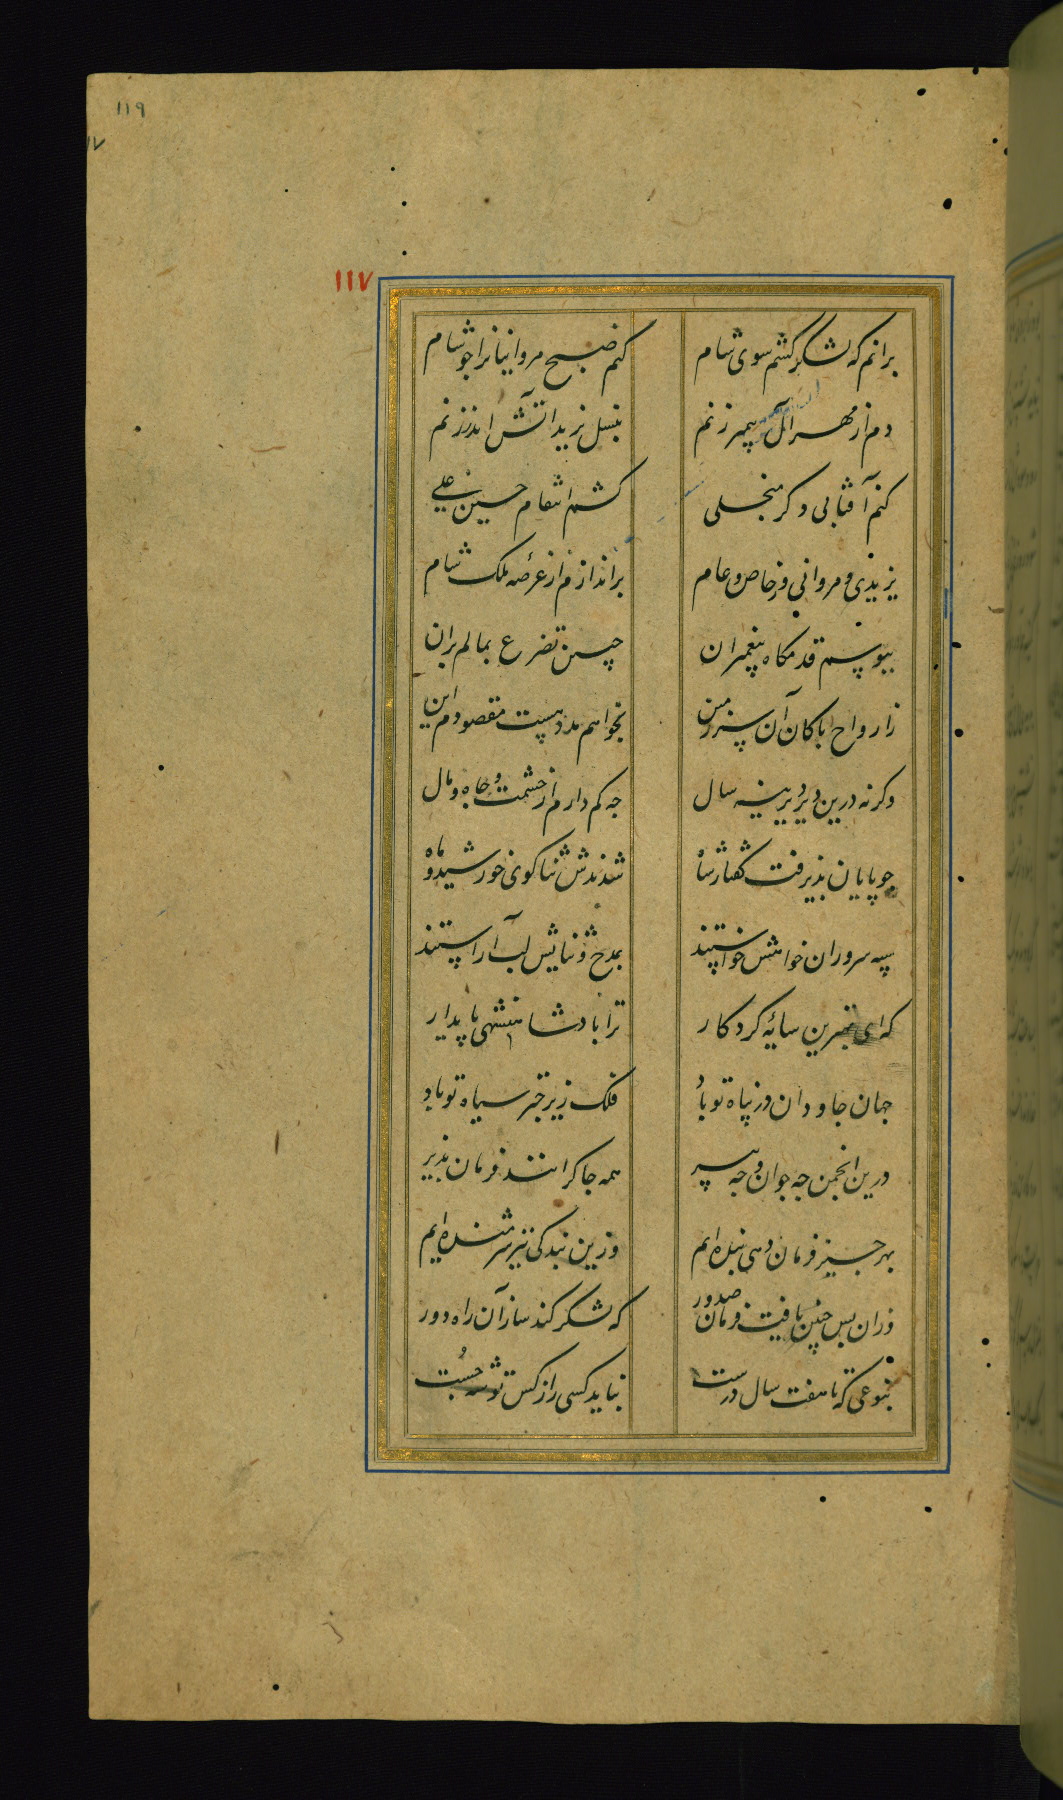 ۱۱۹
۱۷
۱۱۷
برانم که لشکر کشم سوی شام کنم صبح مروانیانرا چو شام
دم از مهر آل پیمبر زنم بنسل یزید آتش اندر زنم
کنم آفتابی دکر منجلی کشم انتقام حسین علی
یزیدی و مروانی و خاص و عام براندازم از عرصه ملک شام
ببوسم قدمکاه پیغمبران جبین تضرع بمالم بران
ز ارواح پاکان آن سرزمین بخواهم مدد هست مقصودم این
وکرنه درین دیر دیرینه سال جه کم دارم از حشمت و جاه و مال
جو پایان پذیرفت گفتار شاه شدندش ثنا کوی خورشید و ماه
سپه سروران خواهش خواستند بمدح و ثنایش لب آراستند
که ای بهترین سایهٔ کردکار ترا باد شاهنشهی پایدار
جهان جاودان در پناه تو باد فلک زیر چتر سیاه تو باد
درین انجمن جه جوان و جه پیر همه جاکرانند فرمان پذیر
بهر جیز فرمان دهی بنده ایم وزین بندکی نیز شرمنده ایم
وزان پس جنین یافت فرمان صدور که لشکر کند ساز آن راه دور
بنوعی که تا هفت سال درست نباید کسی را ز کس توشه جست